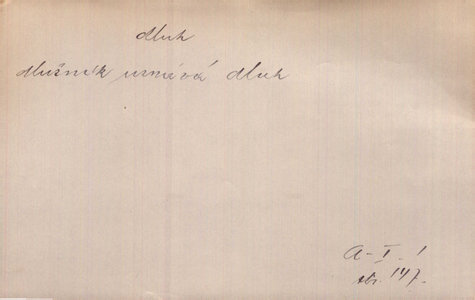 dluh
dlužník uznává dluh
A-I. 1
str. 147.